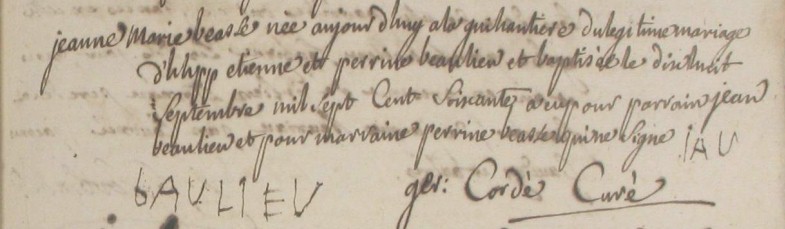 jeanne Marie beasse née aujourd'huy a la guihautiere du legitime mariage
d'hilipp etienne et perrine beaulieu et baptisée le dixhuit
Septembre mil Sept Cent Soixante, a eu pour parrain jean
beaulieu et pour marraine perrine beasse qui ne Signe IAU
bAULIEU ger: Cordé Curé